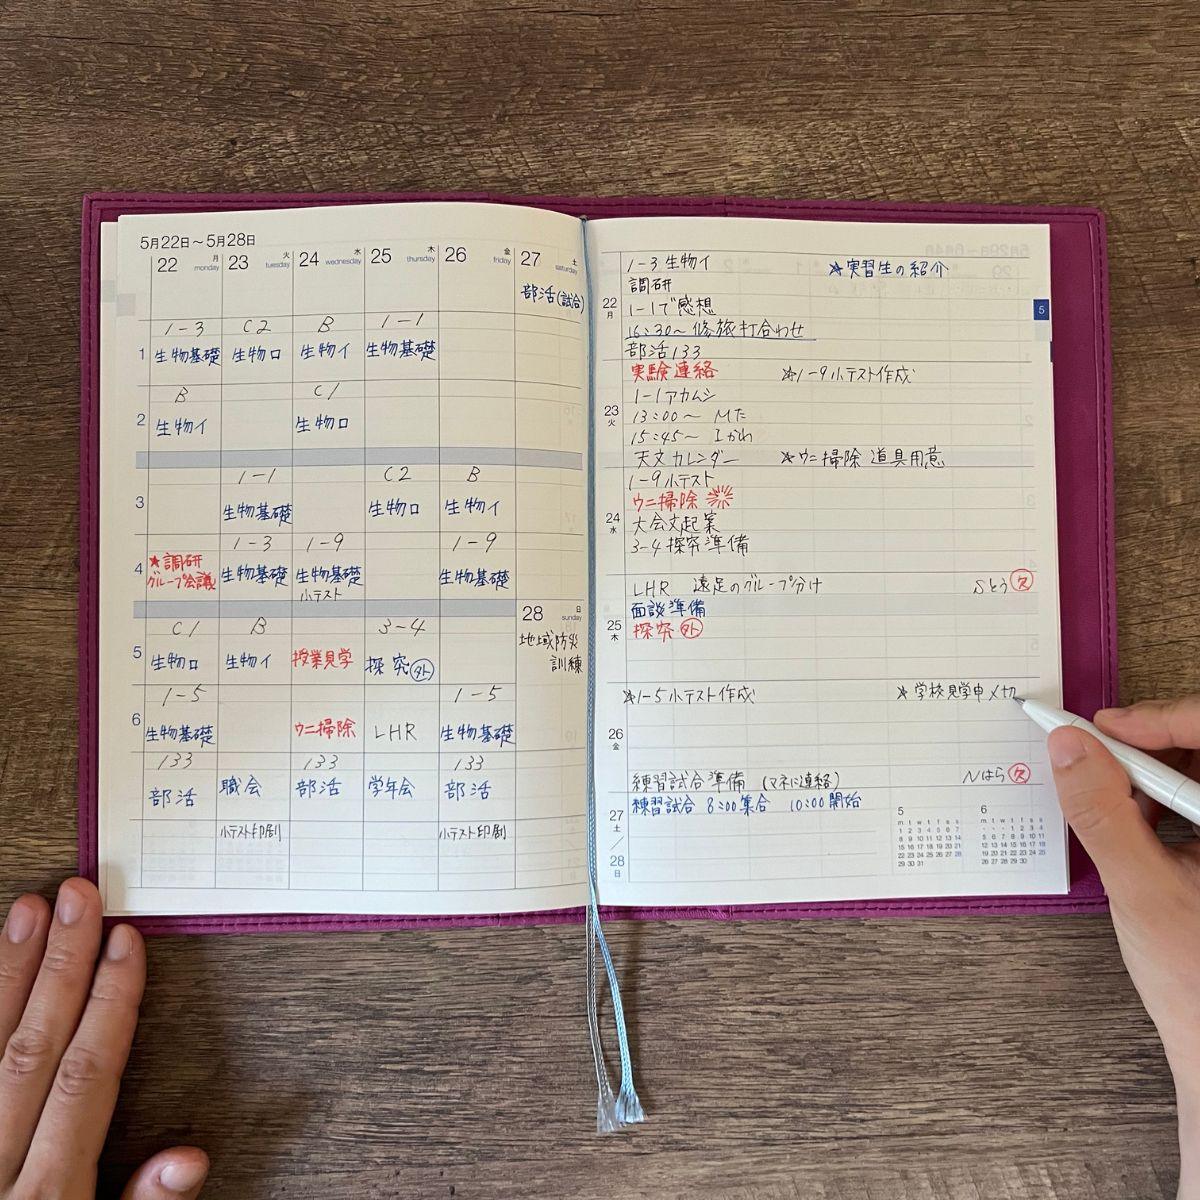 5月22日～5月28日
22 月 monday
23 火 tuesday
24 水 wednesday
25 木 thursday
26 金 friday
27 土 saturday
部活(試合)
1-3 C2 B 1-1
1 生物基礎 生物ロ 生物イ 生物基礎
B C1
2 生物イ 生物ロ
1-1 C2 B
3 生物基礎 生物ロ 生物イ
1-3 1-9 1-9
4 ★調研 グループ会議 生物基礎 生物基礎 生物基礎
小テスト
28 日 sunday
地域防災
訓練
C1 B 3-4
5 生物ロ 生物イ 授業見学 探究 外
1-5 1-5
6 生物基礎 ウニ掃除 LHR 生物基礎
133 133 133
部活 職会 部活 学年会 部活
小テスト印刷 小テスト印刷
22 月
1-3 生物イ ★実習生の紹介
調研
1-1で感想
16:30～修旅打合わせ
部活133
23 火
実験連絡 ★1-9小テスト作成
1-1アカムシ
13:00～ Mた
15:45～ Iかわ
天文カレンダー ★ウニ掃除 道具用意
24 水
1-9小テスト
ウニ掃除
大会文起案
3-4探究準備
25 木
LHR 遠足のグループ分け Sとう 欠
面談準備
探究 外
26 金
★1-5小テスト作成 ★学校見学申〆切
練習試合準備 (マネに連絡) Nはら 欠
27 土 / 28 日
練習試合 8:00集合 10:00開始
5
m t w t f s s
1 2 3 4 5 6 7
8 9 10 11 12 13 14
15 16 17 18 19 20 21
22 23 24 25 26 27 28
29 30 31
6
m t w t f s s
・ ・ ・ 1 2 3 4
5 6 7 8 9 10 11
12 13 14 15 16 17 18
19 20 21 22 23 24 25
26 27 28 29 30
5